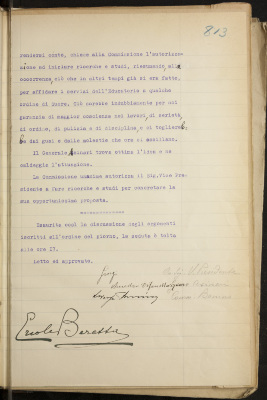 813
rendersi conto, chiese alla Commissione l'autorizza-
zione ad iniziare ricerche e studi, ricavando alla
occorrenza ciò che in altri tempi già si era fatto,
per affidare i servizi dell'Educatorio a qualche
ordine di suore. Ciò sarebbe indubbiamente per noi
garanzia di maggior coscienza nei lavori, di serietà,
di ordine, di pulizia e di disciplina e ci toglierebbe
dai guai e dalle molestie che ora ci assillano.
Il Generale trova ottima l'idea e ne
caldeggia l'attuazione.
La Commissione unanime autorizza il Sig. Vice Pre-
sidente a fare ricerche e studi per concretare la
sua opportunissima proposta.
Esaurita così la discussione sugli argomenti
inscritti all'ordine del giorno, la seduta è tolta
alle ore 17.
Letto ed approvato.
Ercole Beretta